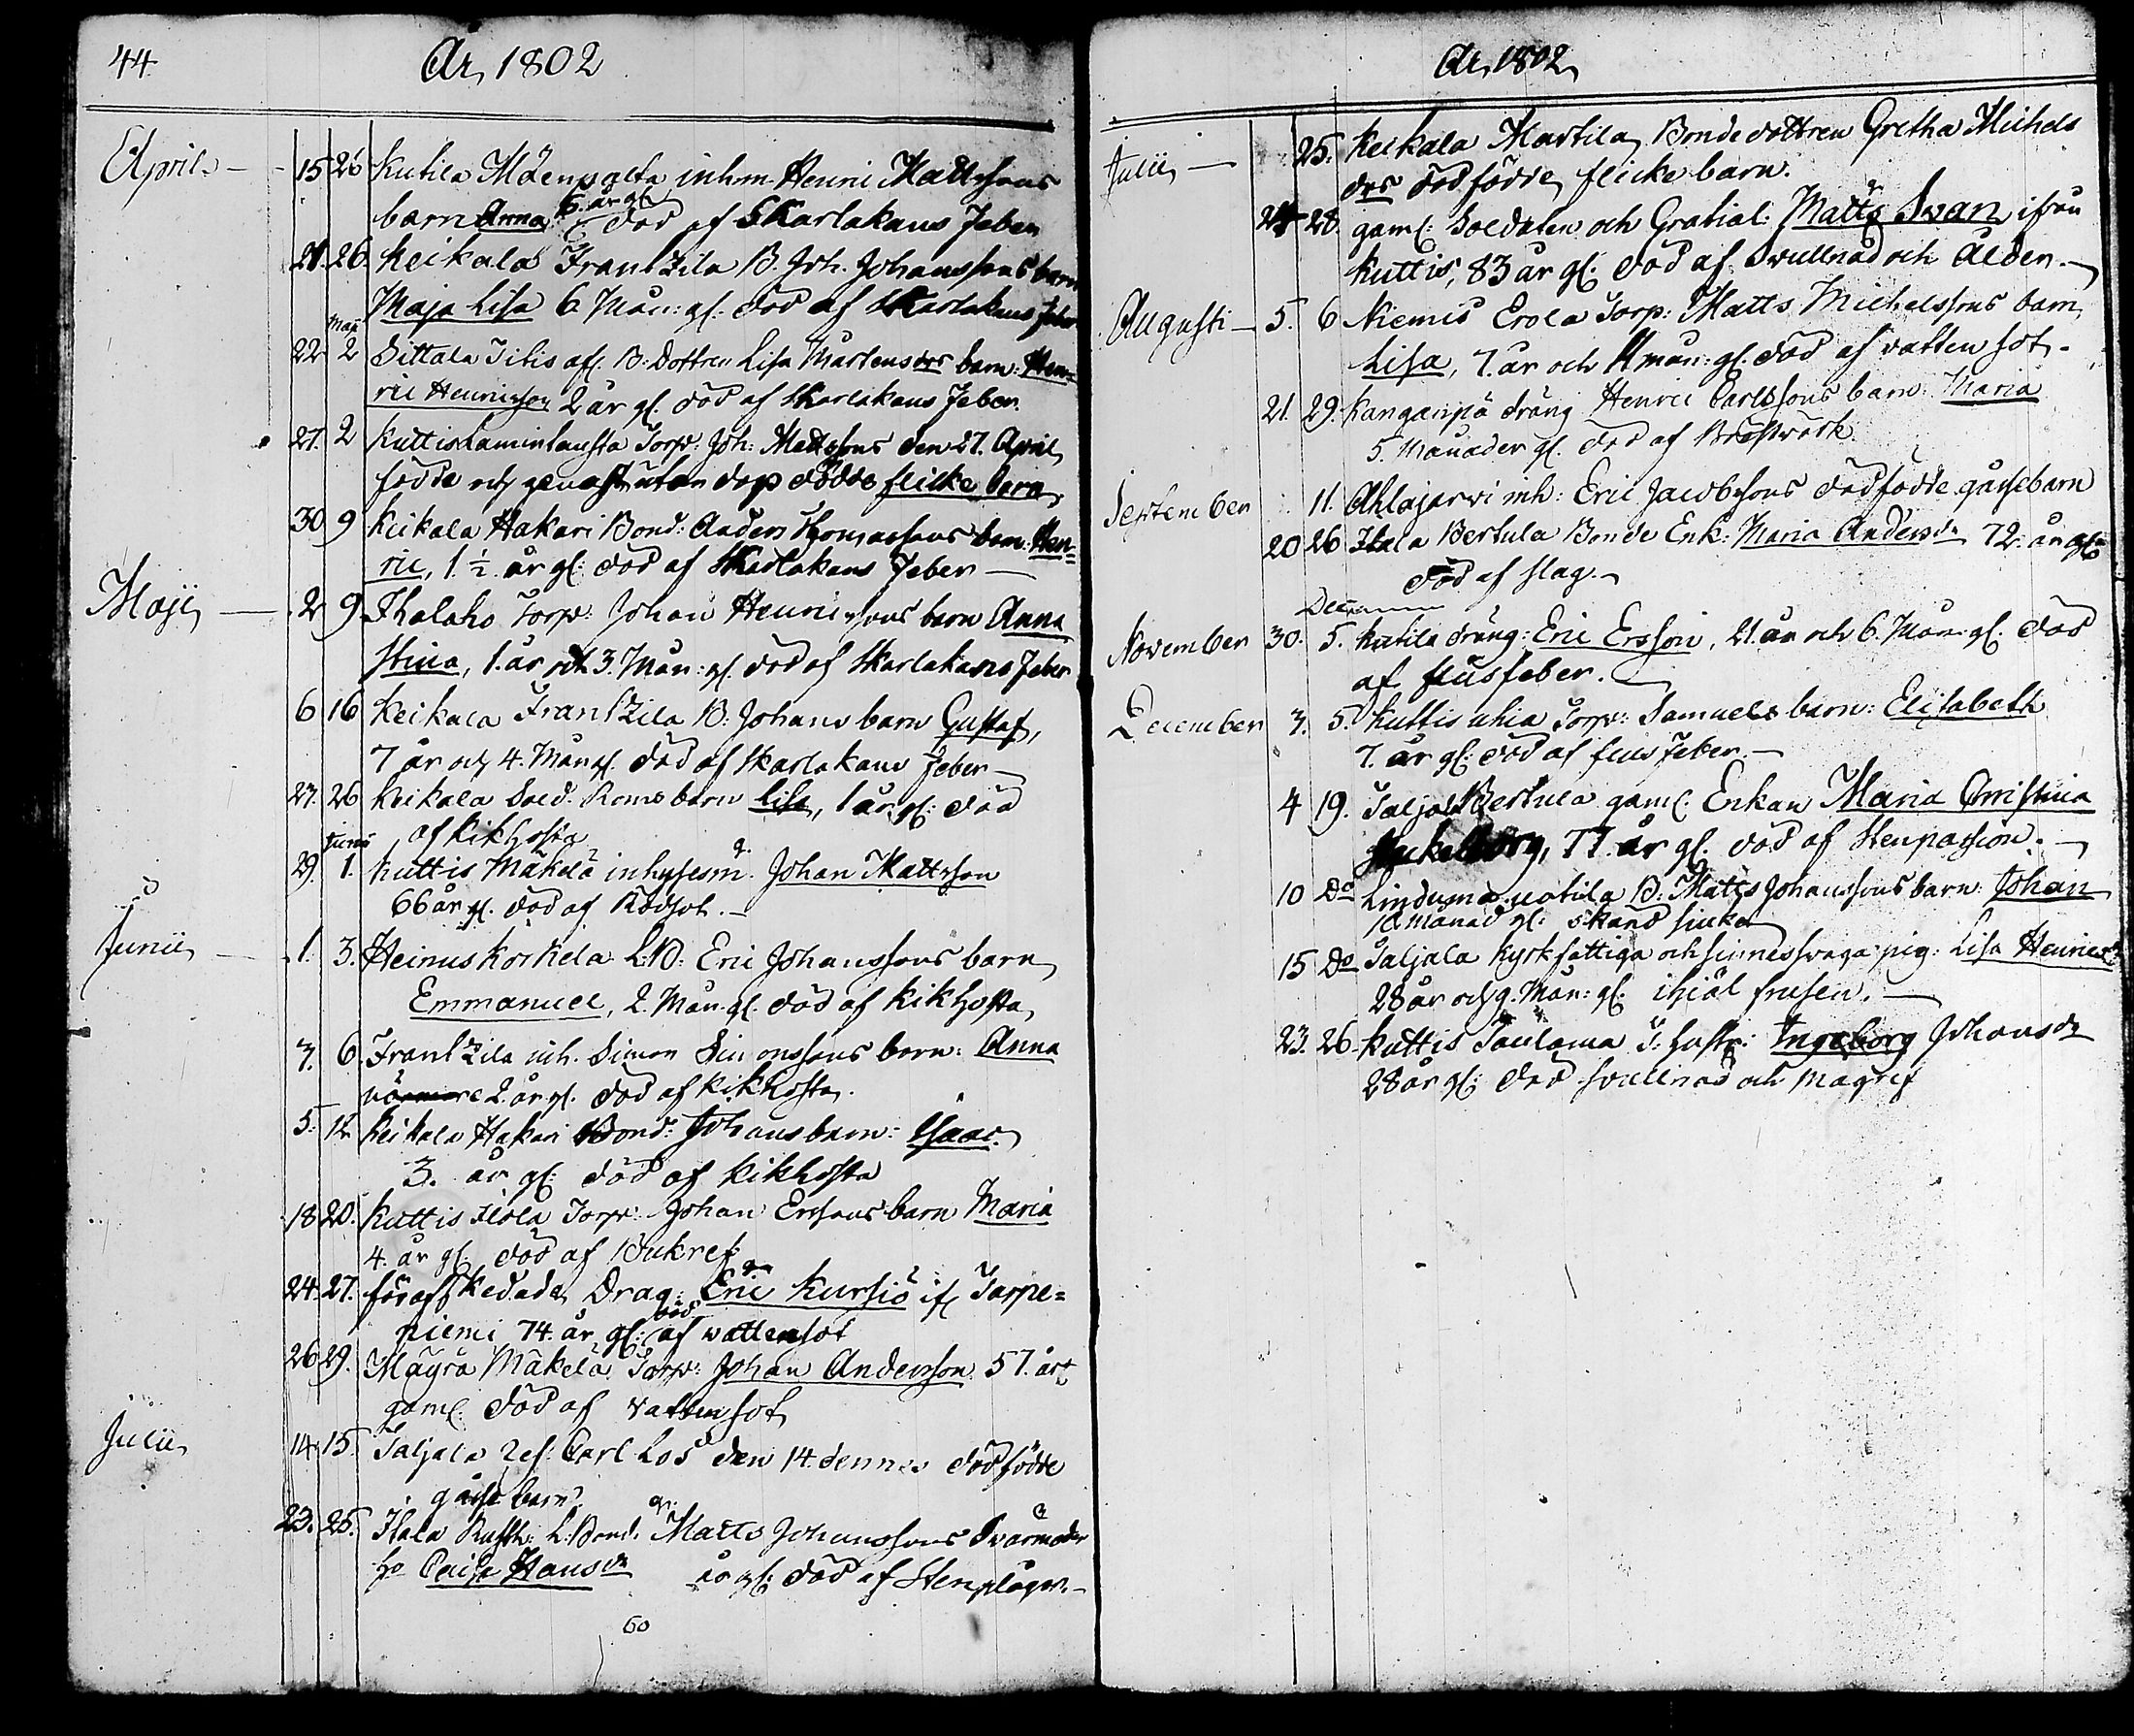 44
År 1802
April
15 26 Kutila Mäenpgeta inh:m Henric Mattssons
barn Anna 6. år gl död af Skarlakans feber
21. 26. Keikala Frantzila B. Joh. Johanssons barn
Maja Lisa 6 Mån: gl. död af Skarlakans feber
Maji
22 2 Sittala Titis afl. B: Dottren Lisa Mårtensdrs barn: Hen=
ric Henricson 2 år gl. död af Skarlakans feber.
27. 2 Kuttis Torp: Joh: Mattssons den 27. April
födde och genast utan dop dödde flicke barn
30 9 Keikala Hakari Bond: Anders Thomassons barn: Hen=
ric, 1 ½ år gl: död af Skarlakans feber
Maji
2 9. Ihalaho Torp: Johan Henricssons barn Anna
Stina, 1. år och 3. Mån: gl. död af Skarlakans feber
6 16 Keikala Frantzila B: Johans barn Gustaf,
7 år och 4. Mån gl. död af Skarlakans feber
27. 26 Keikala Sold. Roms barn Lisa, 1 år gl: död
af Kikhosta
Junii
29. 1. Kuttis Mäkelä inhysesm. Johan Mattsson
66 år gl. död af Rödsot.
Junii
1. 3. Heinus Korkela L:B: Eric Johanssons barn
Emmanuel, 2. Mån. gl. död af Kikhosta
3. 6. Frantzila inh. Simon Simonssons barn: Anna
2. år gl. död af Kikhosta.
5. 12 Keikala Hakari Bond: Johans barn: Isaac
3. år gl: död af Kikhosta
18 20. Kuttis Ilola Torp: Johan Erssons barn Maria
4. år gl. död af Bukref
24. 27. förafskedade Drag: Eric Kursiö if Sarpe=
niemi 74. år gl: död af wattensot
26 29. Mäyrä Mäkelä Torp: Johan Andersson 57. år
gaml: död af vattensot
Julii
14. 15. Saljala ref: Carl Los den 14. dennes dödfödde
gåsse barn
23. 25. Ilala Rusth: L:Bond. Matts Johanssons Svärmoder
Caisa Hansdr år gl: död af Stenplågor.
60
År 1802
Julii
25. Keikala Martila Bonde dottren Gretha Michels
drs dödfödde flicke barn.
24 28. gaml: Soldaten och Gratial: Matts Svan ifrån
Kuttis, 83 år gl: död af Svullnad och Ålder.
Augusti
5. 6 Niemis Erola Torp: Matts Michelssons barn
Lisa, 7. år och 4 mån: gl. död af vatten sot.
21. 29. Kanganpä dräng Henric Carlssons barn: Maria
5. Månader gl. död af Bröstwärk
September
11. Ahlajarvi inh: Eric Jacobssons dödfödde gåssebarn
20 26 Ilala Bertula Bonde Enk: Maria Andersdr 72. år gl:
död af slag.
Decem
November
30. 5. Kutila dräng: Eric Ersson, 21. år och 6. Mån: gl: död
af flusfeber.
December
3. 5. Kuttis uhia Torp: Samuels barn: Elisabeth
7. år gl: död af flus feber.
4 19. Saljala Bertula gaml: Enkan Maria Christina
77. år gl. död af Stenpassion.
10 Do Linduma uotila B: Matts Johanssons barn: Johan
10 månad gl: okänd siuka
15 Do Saljala Kyrkfattiga och sinnessvaga pig: Lisa Henricsdr
28 år och 9. Mån: gl. ihjäl frusen.
23. 26. Kuttis Taulama S: hustr: Ingeborg Johansdr
28 år gl: död svullnad och magref